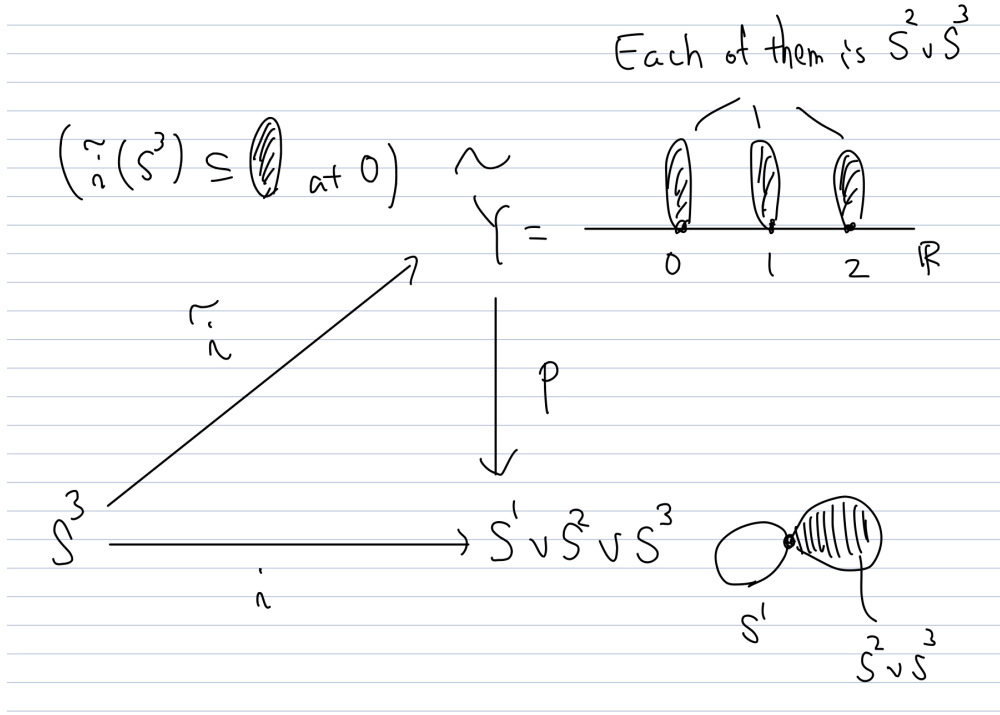 Each of them is S² ∨ S³
(ĩ(S³) ⊆ at 0)
Ỹ =
0 1 2 ℝ
ĩ
p
S³
i
S¹ ∨ S² ∨ S³
S¹
S² ∨ S³